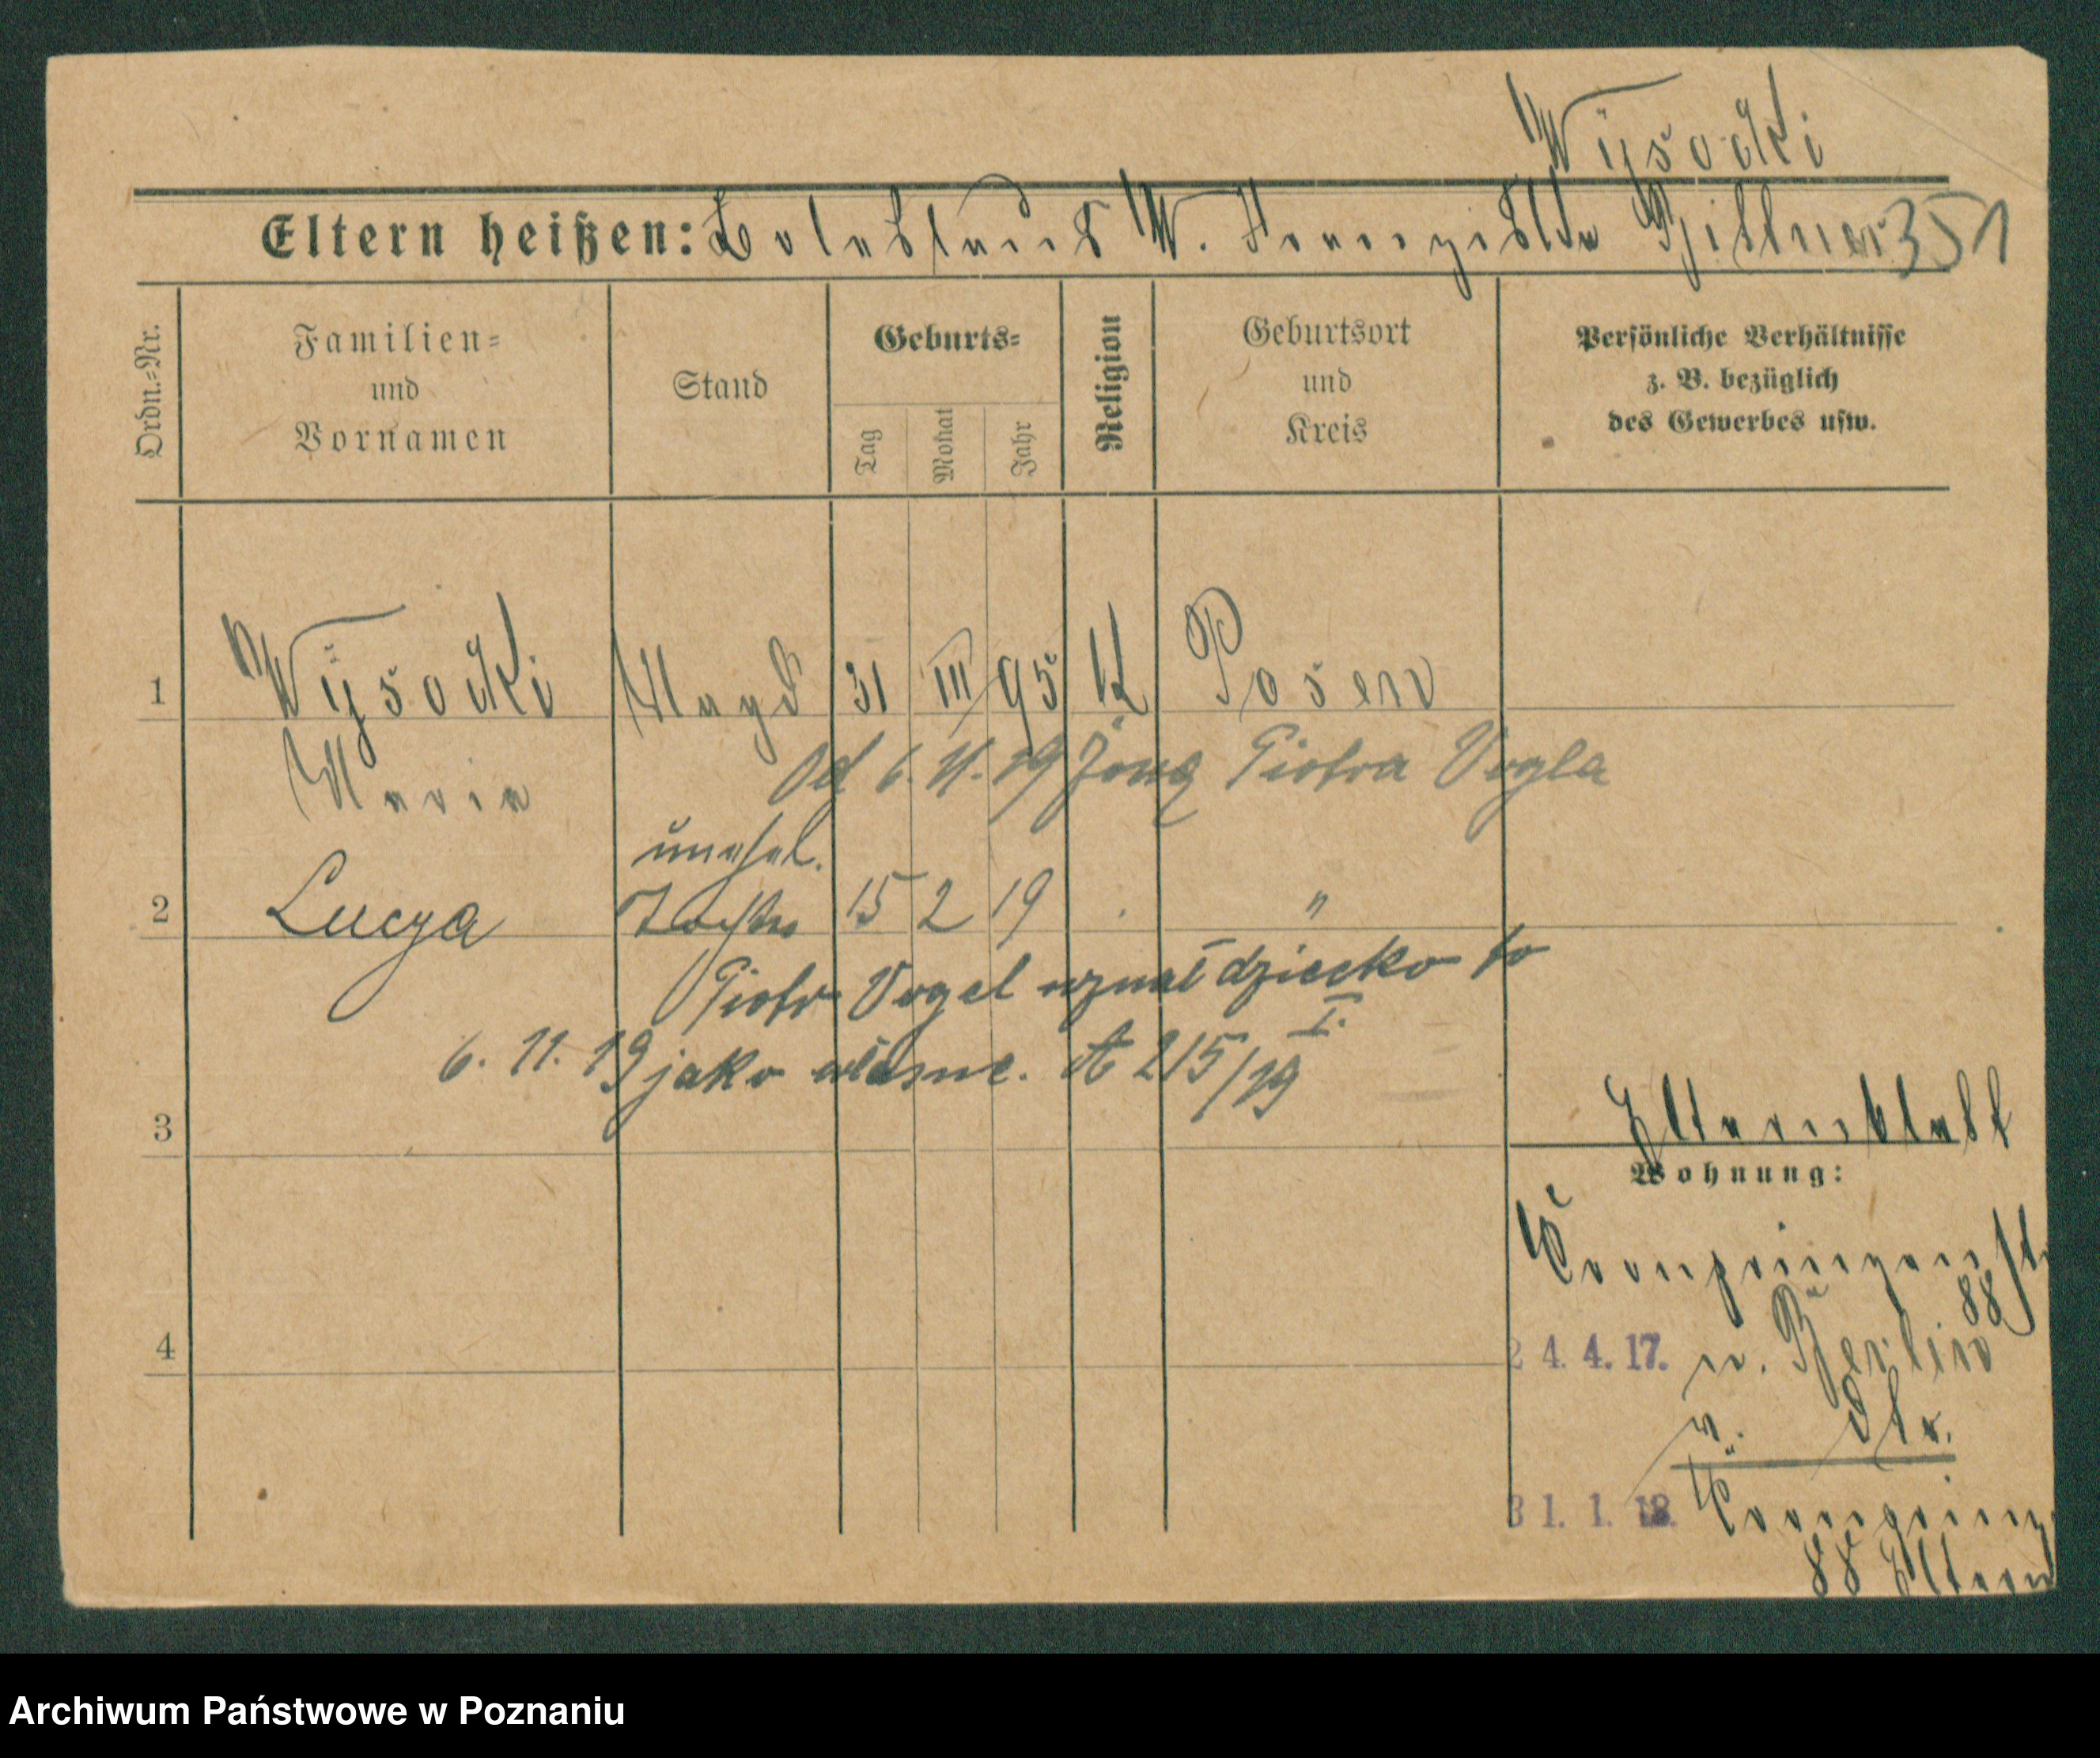 Wysocki
Eltern heißen: Boleslaus W. Franziska Bittner 351
Ordn.=Nr.
Familien=
und
Vornamen
Stand
Geburts=
Tag
Monat
Jahr
Religion
Geburtsort
und
Kreis
Persönliche Verhältnisse
z. B. bezüglich
des Gewerbes usw.
1 Wysocki Magd 31 III 95 K Posen
Maria Od 6. 11. 19 żoną Piotra Vogla
unehel.
2 Lucya Tochter 15 2 19 "
Piotr Vogel uznał dziecko to
6. 11. 19 jako własne. A 215/19 I.
3
Elternblatt
Wohnung:
Kronprinzenstr
88
4
24. 4. 17. n. Berlin
v. dtr.
31. 1. 18. Kronprinz
88 Eltern
Archiwum Państwowe w Poznaniu